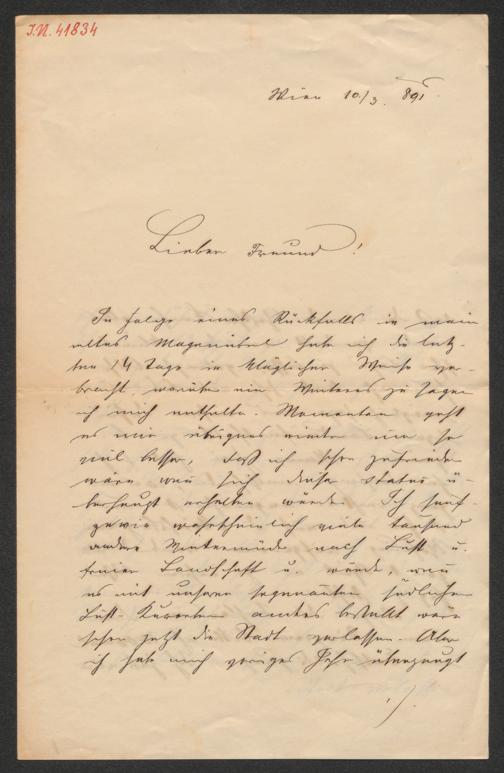 I.N. 41834
Wien 10./3. 891.
Lieber Freund!
In Folge eines Rückfalls in mein
altes Magenübel habe ich die letz-
ten 14 Tage in kläglicher Weise ver-
bracht worüber ein Weiteres zu sagen
ich mich enthalte. Momentan geht
es mir übrigens wieder um so
viel besser, daß ich schon zufrieden
wäre wen sich dieser status ü-
berhaupt erhalten würde. Ich seuf-
ze wie wahrscheinlich viele tausend
andere Wintermüde nach Luft u.
freier Landschaft u. würde, wen
es mit unseren sogenannten südlichen
Luft-Kurorten anders bestellt wäre
schon jetzt die Stadt verlassen. Aber
ich habe mich voriges Jahr überzeugt